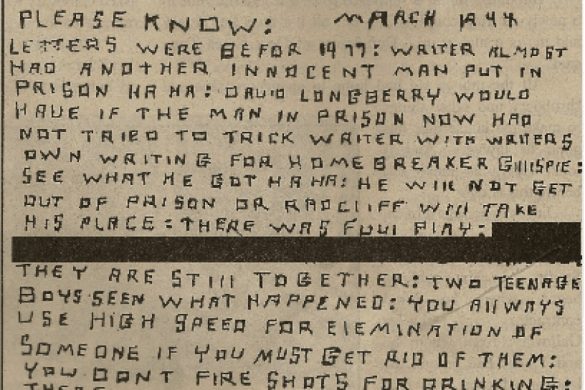 PLEASE KNOW: MARCH 1994
LETTERS WERE BEFOR 1977: WRITER ALMOST
HAD ANOTHER INNOCENT MAN PUT IN
PRISON HA HA: DAVID LONGBERRY WOULD
HAVE IF THE MAN IN PRISON NOW HAD
NOT TRIED TO TRICK WRITER WITH WRITERS
OWN WRITING FOR HOMEBREAKER GHILLSPIE:
SEE WHAT HE GOT HA HA: HE WILL NOT GET
OUT OF PRISON OR RADCLIFF WILL TAKE
HIS PLACE: THERE WAS FOUL PLAY:
THEY ARE STILL TOGETHER: TWO TEENAGE
BOYS SEEN WHAT HAPPENED: YOU ALLWAYS
USE HIGH SPEED FOR ELEMINATION OF
SOMEONE IF YOU MUST GET RID OF THEM:
YOU DONT FIRE SHOTS FOR DRINKING: